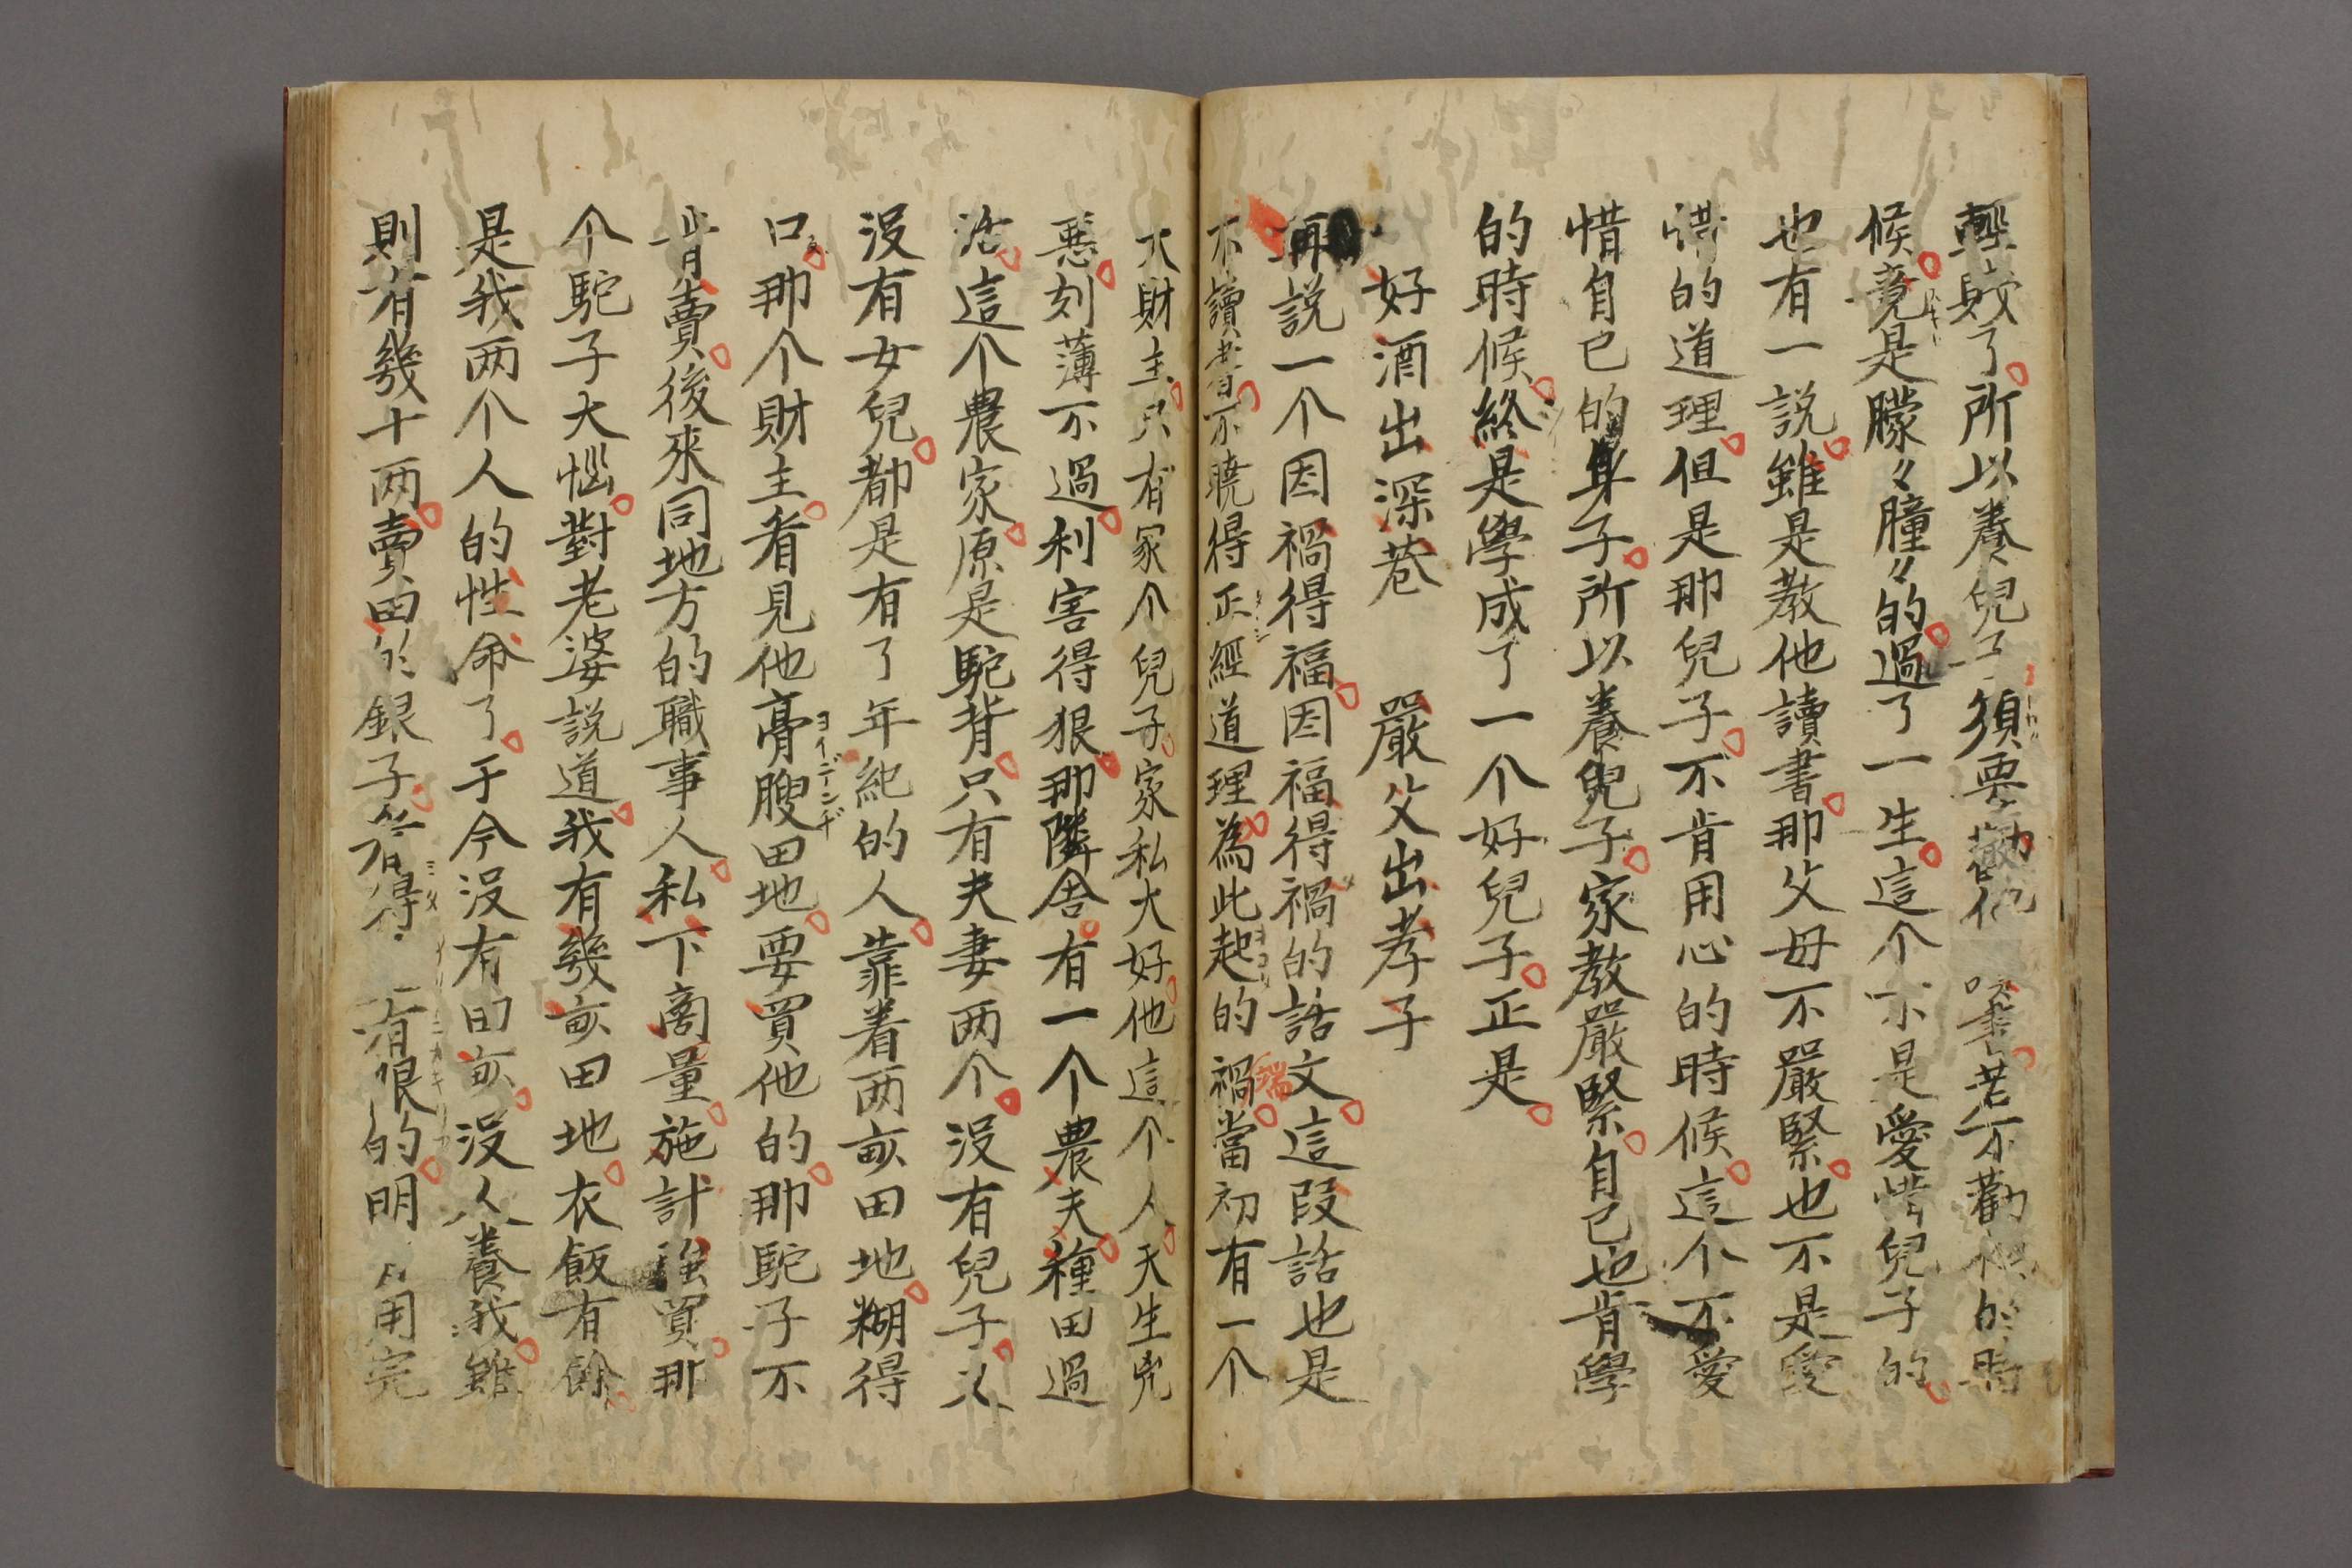 輕賤了所以養兒子須要勸他讀書若不勸他的時
候竟是朦々朣々的過了一生這个不是愛惜兒子的
也有一説雖是教他讀書那父母不嚴緊也不是愛
惜的道理但是那兒子不肯用心的時候這个不愛
惜自已的身子所以養兒子家教嚴緊自己也肯學
的時候終是學成了一个好兒子正是
好酒出深巷　嚴父出孝子
再説一个因禍得福因福得禍的話文這叚話也是
不讀書不曉得正經道理為此起的禍端當初有一个
大財主只有冢个兒子家私大好他這个人天生兇
惡刻薄不過利害得狠那隣舍有一个農夫種田過
活這个農家原是駝背只有夫妻两个沒有兒子又
沒有女兒都是有了年紀的人靠着两畝田地糊得
口那个財主看見他膏腴田地要買他的那駝子不
ヨイデーンヂ
肯賣後來同地方的職事人私下商量施計強買那
个駝子大惱對老婆説道我有幾畝田地衣飯有餘
是我两个人的性命了于今沒有田畝沒人養我雖
則有幾十两賣田的銀子眷得有限的明用完